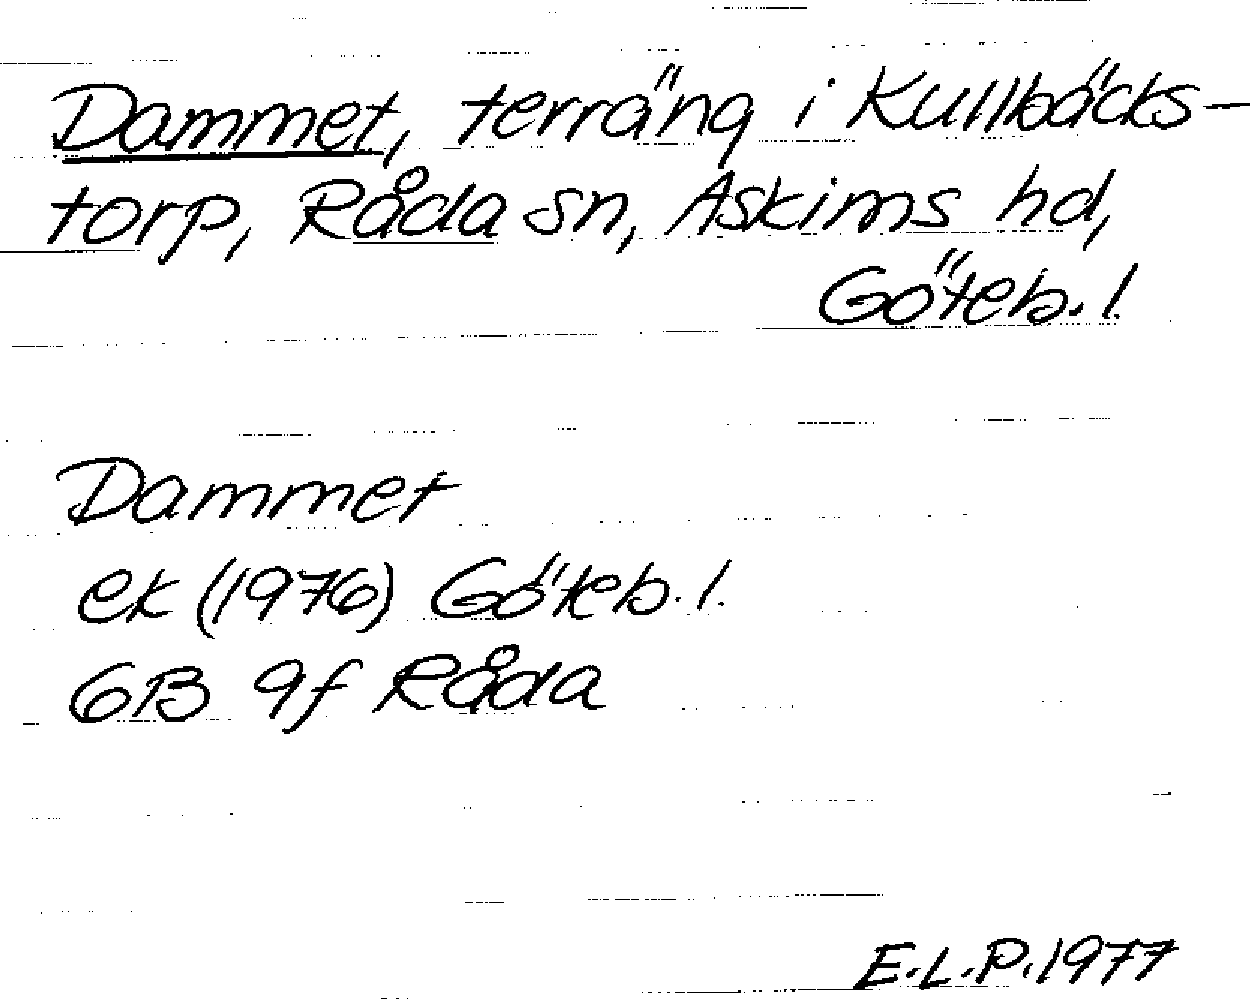 Dammet, terräng i Kullbäcks-
torp, Råda sn, Askims hd,
Göteb. l.
Dammet
ek (1976) Göteb. l.
6B 9f Råda
E.L.P. 1977